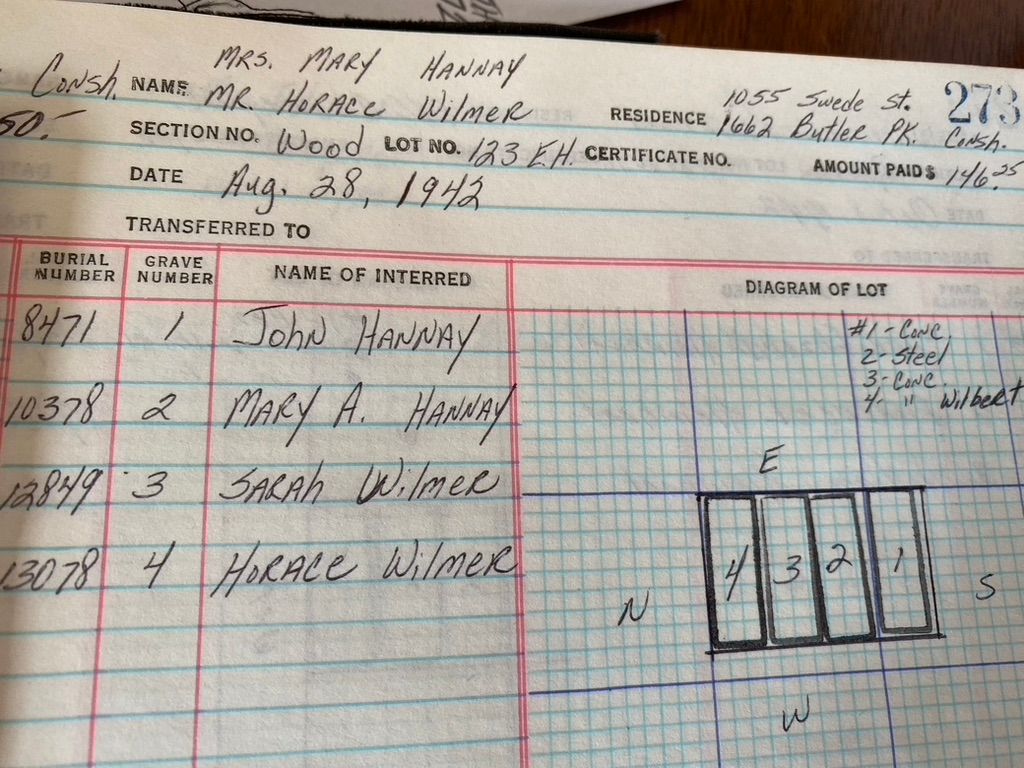 MRS. MARY HANNAY
Consh. NAME MR. HORACE Wilmer RESIDENCE 1055 Swede St. 273
1662 Butler PK. Consh.
50.- SECTION NO. Wood LOT NO. 123 E.H. CERTIFICATE NO. AMOUNT PAID $ 146.25
DATE Aug. 28, 1942
TRANSFERRED TO
BURIAL NUMBER GRAVE NUMBER NAME OF INTERRED DIAGRAM OF LOT
8471 1 John HANNAY
10378 2 MARY A. HANNAY
12849 3 SARAh Wilmer
13078 4 HORACE Wilmer
#1 - Conc.
2 - Steel
3 - Conc.
4 - " Wilbert
E
4 3 2 1
N S
W